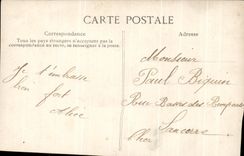 CARTE POSTALE
Correspondance
Adresse
Tous les pays étrangers n'acceptent pas la
correspondance au recto, se renseigner à la poste.
Monsieur
Je t'embrasse
Paul Biguin
bien
fort
Rue Basses des Remparts
Alice
Sancerre
Cher